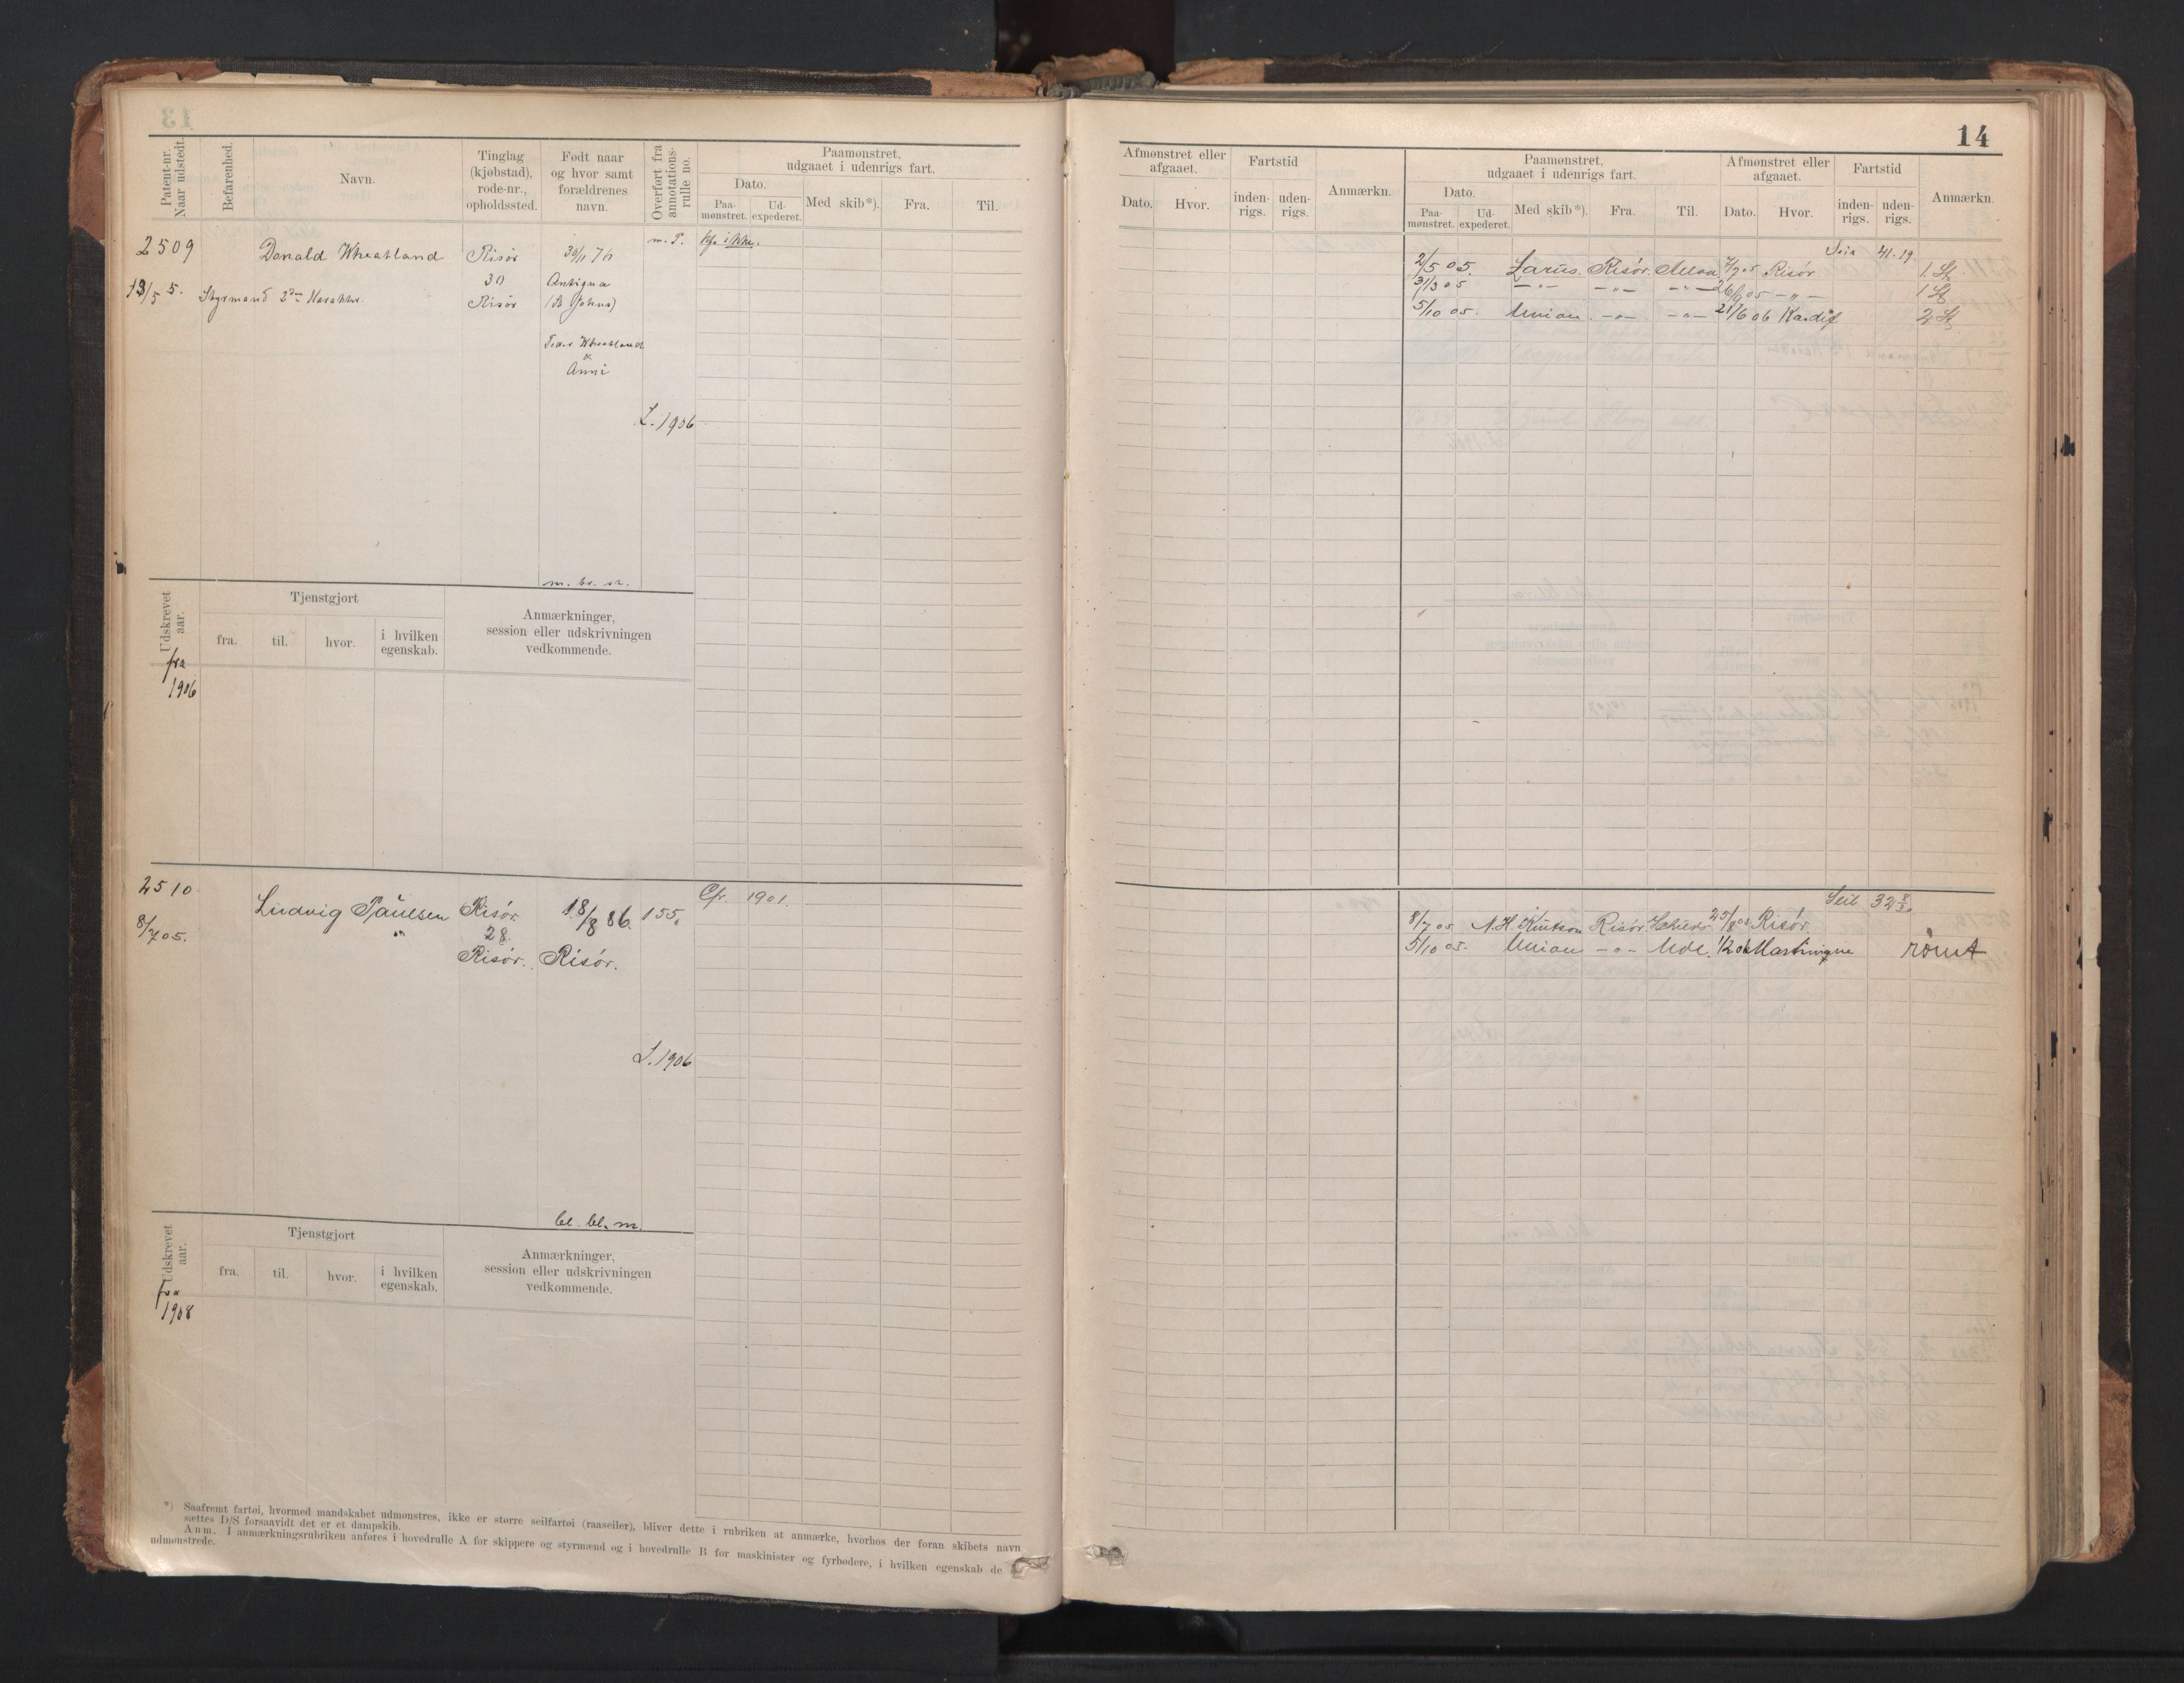 14
Patent-nr. Naar udstedt.
Befarenhed.
Navn.
Tinglag (kjøbstad), rode-nr., opholdssted.
Født naar og hvor samt forældrenes navn.
Overført fra annotations-rulle no.
Paamønstret, udgaaet i udenrigs fart.
Dato.
Paa-mønstret.
Ud-expederet.
Med skib*).
Fra.
Til.
2509
13/5 5.
Donald Wheatland
Styrmand 2den
Risör
30
Risör
30/11 76
Antigua
(St Johns)
Wheatland
Anni
L. 1906
m. br. st.
Udskrevet aar.
Tjenstgjort
fra.
til.
hvor.
i hvilken egenskab.
Anmærkninger, session eller udskrivningen vedkommende.
fra
1906
2510
8/7 05.
Ludvig Paulsen
Risör
28.
Risör.
18/8 86.
Risör.
155
Cfr. 1901.
L. 1906
bl. bl. m.
Udskrevet aar.
Tjenstgjort
fra.
til.
hvor.
i hvilken egenskab.
Anmærkninger, session eller udskrivningen vedkommende.
fra
1908
*) Saafremt fartøi, hvormed mandskabet udmønstres, ikke er større seilfartøi (raaseiler), bliver dette i rubriken at anmærke, hvorhos der foran skibets navn
sættes D/S forsaavidt det er et dampskib.
Anm. I anmærkningsrubriken anføres i hovedrulle A for skippere og styrmænd og i hovedrulle B for maskinister og fyrbødere, i hvilken egenskab de er
udmønstrede.
Afmønstret eller afgaaet.
Dato.
Hvor.
Fartstid
inden-rigs.
uden-rigs.
Anmærkn.
Paamønstret, udgaaet i udenrigs fart.
Dato.
Paa-mønstret.
Ud-expederet.
Med skib*).
Fra.
Til.
Afmønstret eller afgaaet.
Dato.
Hvor.
Fartstid
inden-rigs.
uden-rigs.
Anmærkn.
41. 19
2/5 05. Larus. Risör. 7/9 05 Risör 1 St
— " — — " — — " — — " — 1 St
5/10 05. Union — " — — " — 21/6 06 Kardif 2 St
Seil 32
8/7 05 N. H. Knutson Risör 25/8 05 Risör.
5/10 05. Union — " — 1/2 06 Martinique römt